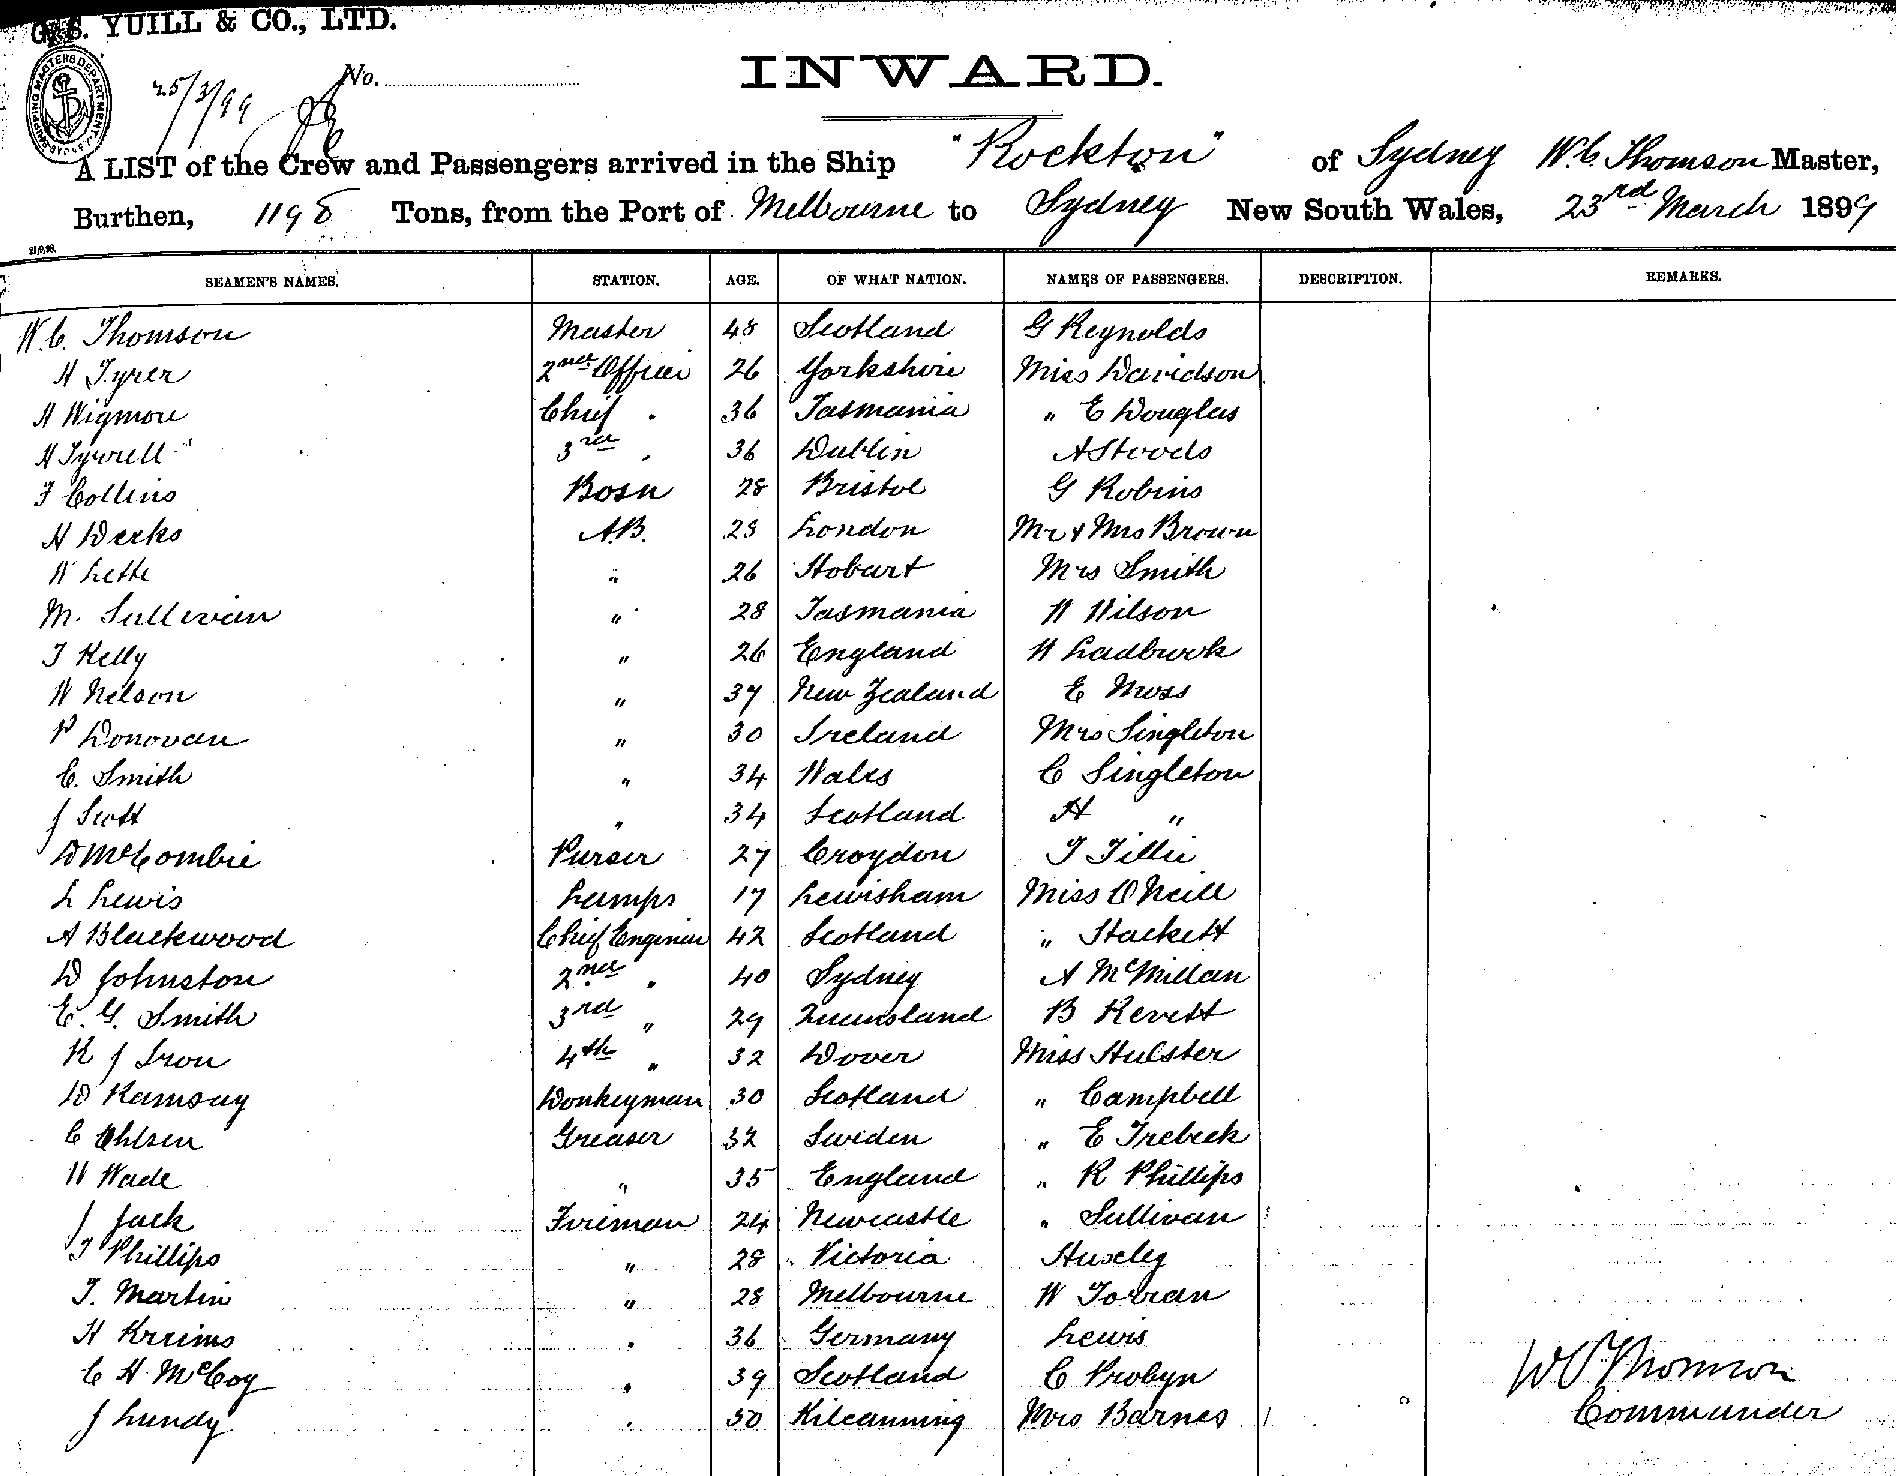 G.S. YUILL & CO., LTD.
SHIPPING MASTERS DEPARTMENT SYDNEY
25/3/99
No.
INWARD.
A LIST of the Crew and Passengers arrived in the Ship "Rockton" of Sydney W.C. Thomson Master,
Burthen, 1198 Tons, from the Port of Melbourne to Sydney New South Wales, 23rd March 1899
SEAMEN'S NAMES. STATION. AGE. OF WHAT NATION. NAMES OF PASSENGERS. DESCRIPTION. REMARKS.
W.C. Thomson Master 48 Scotland G Reynolds
H Tyrer 2nd Officer 26 Yorkshire Miss Davidson
H Wigmore Chief " 36 Tasmania " E Douglas
H Tyrrell 3rd " 36 Dublin A Stoods
F Collins Bosn 28 Bristol G Robins
H Weeks A.B. 28 London Mr & Mrs Brown
W Lette " 26 Hobart Mrs Smith
M. Sullivan " 28 Tasmania W Wilson
T Kelly " 26 England W Ladbrook
W Nelson " 37 New Zealand E Moss
P Donovan " 30 Ireland Mrs Singleton
C. Smith " 34 Wales C Singleton
J Scott " 34 Scotland H "
D McCombie Purser 27 Croydon T Tillie
L Lewis Lamps 17 Lewisham Miss O'Neill
A Blackwood Chief Engineer 42 Scotland " Hackett
D Johnston 2nd " 40 Sydney A McMillan
E. G. Smith 3rd " 29 Queensland B Revett
R J Iron 4th " 32 Dover Miss Hulster
D Ramsay Donkeyman 30 Scotland " Campbell
C Ohlsen Greaser 32 Sweden " E Trebeck
W Wade " 35 England " R Phillips
J Jack Fireman 24 Newcastle " Sullivan
T Phillips " 28 Victoria Huxley
T. Martin " 28 Melbourne W
H Kreims " 36 Germany Lewis
C H McCoy " 39 Scotland C Probyn
J Lundy " 30 Mrs Barnes
WC Thomson
Commander